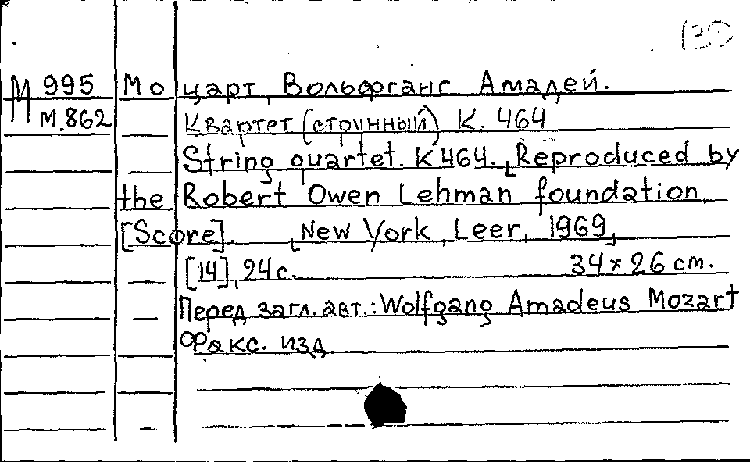 M 995 Моцарт, Вольфганг Амадей.
м.862 Квартет (струнный) К. 464
String quartet. K 464. [Reproduced by
the Robert Owen Lehman foundation
[Score]. [New York, Leer, 1969,
[14], 24 с. 34 × 26 cm.
Перед загл. авт.: Wolfgang Amadeus Mozart
Факс. изд